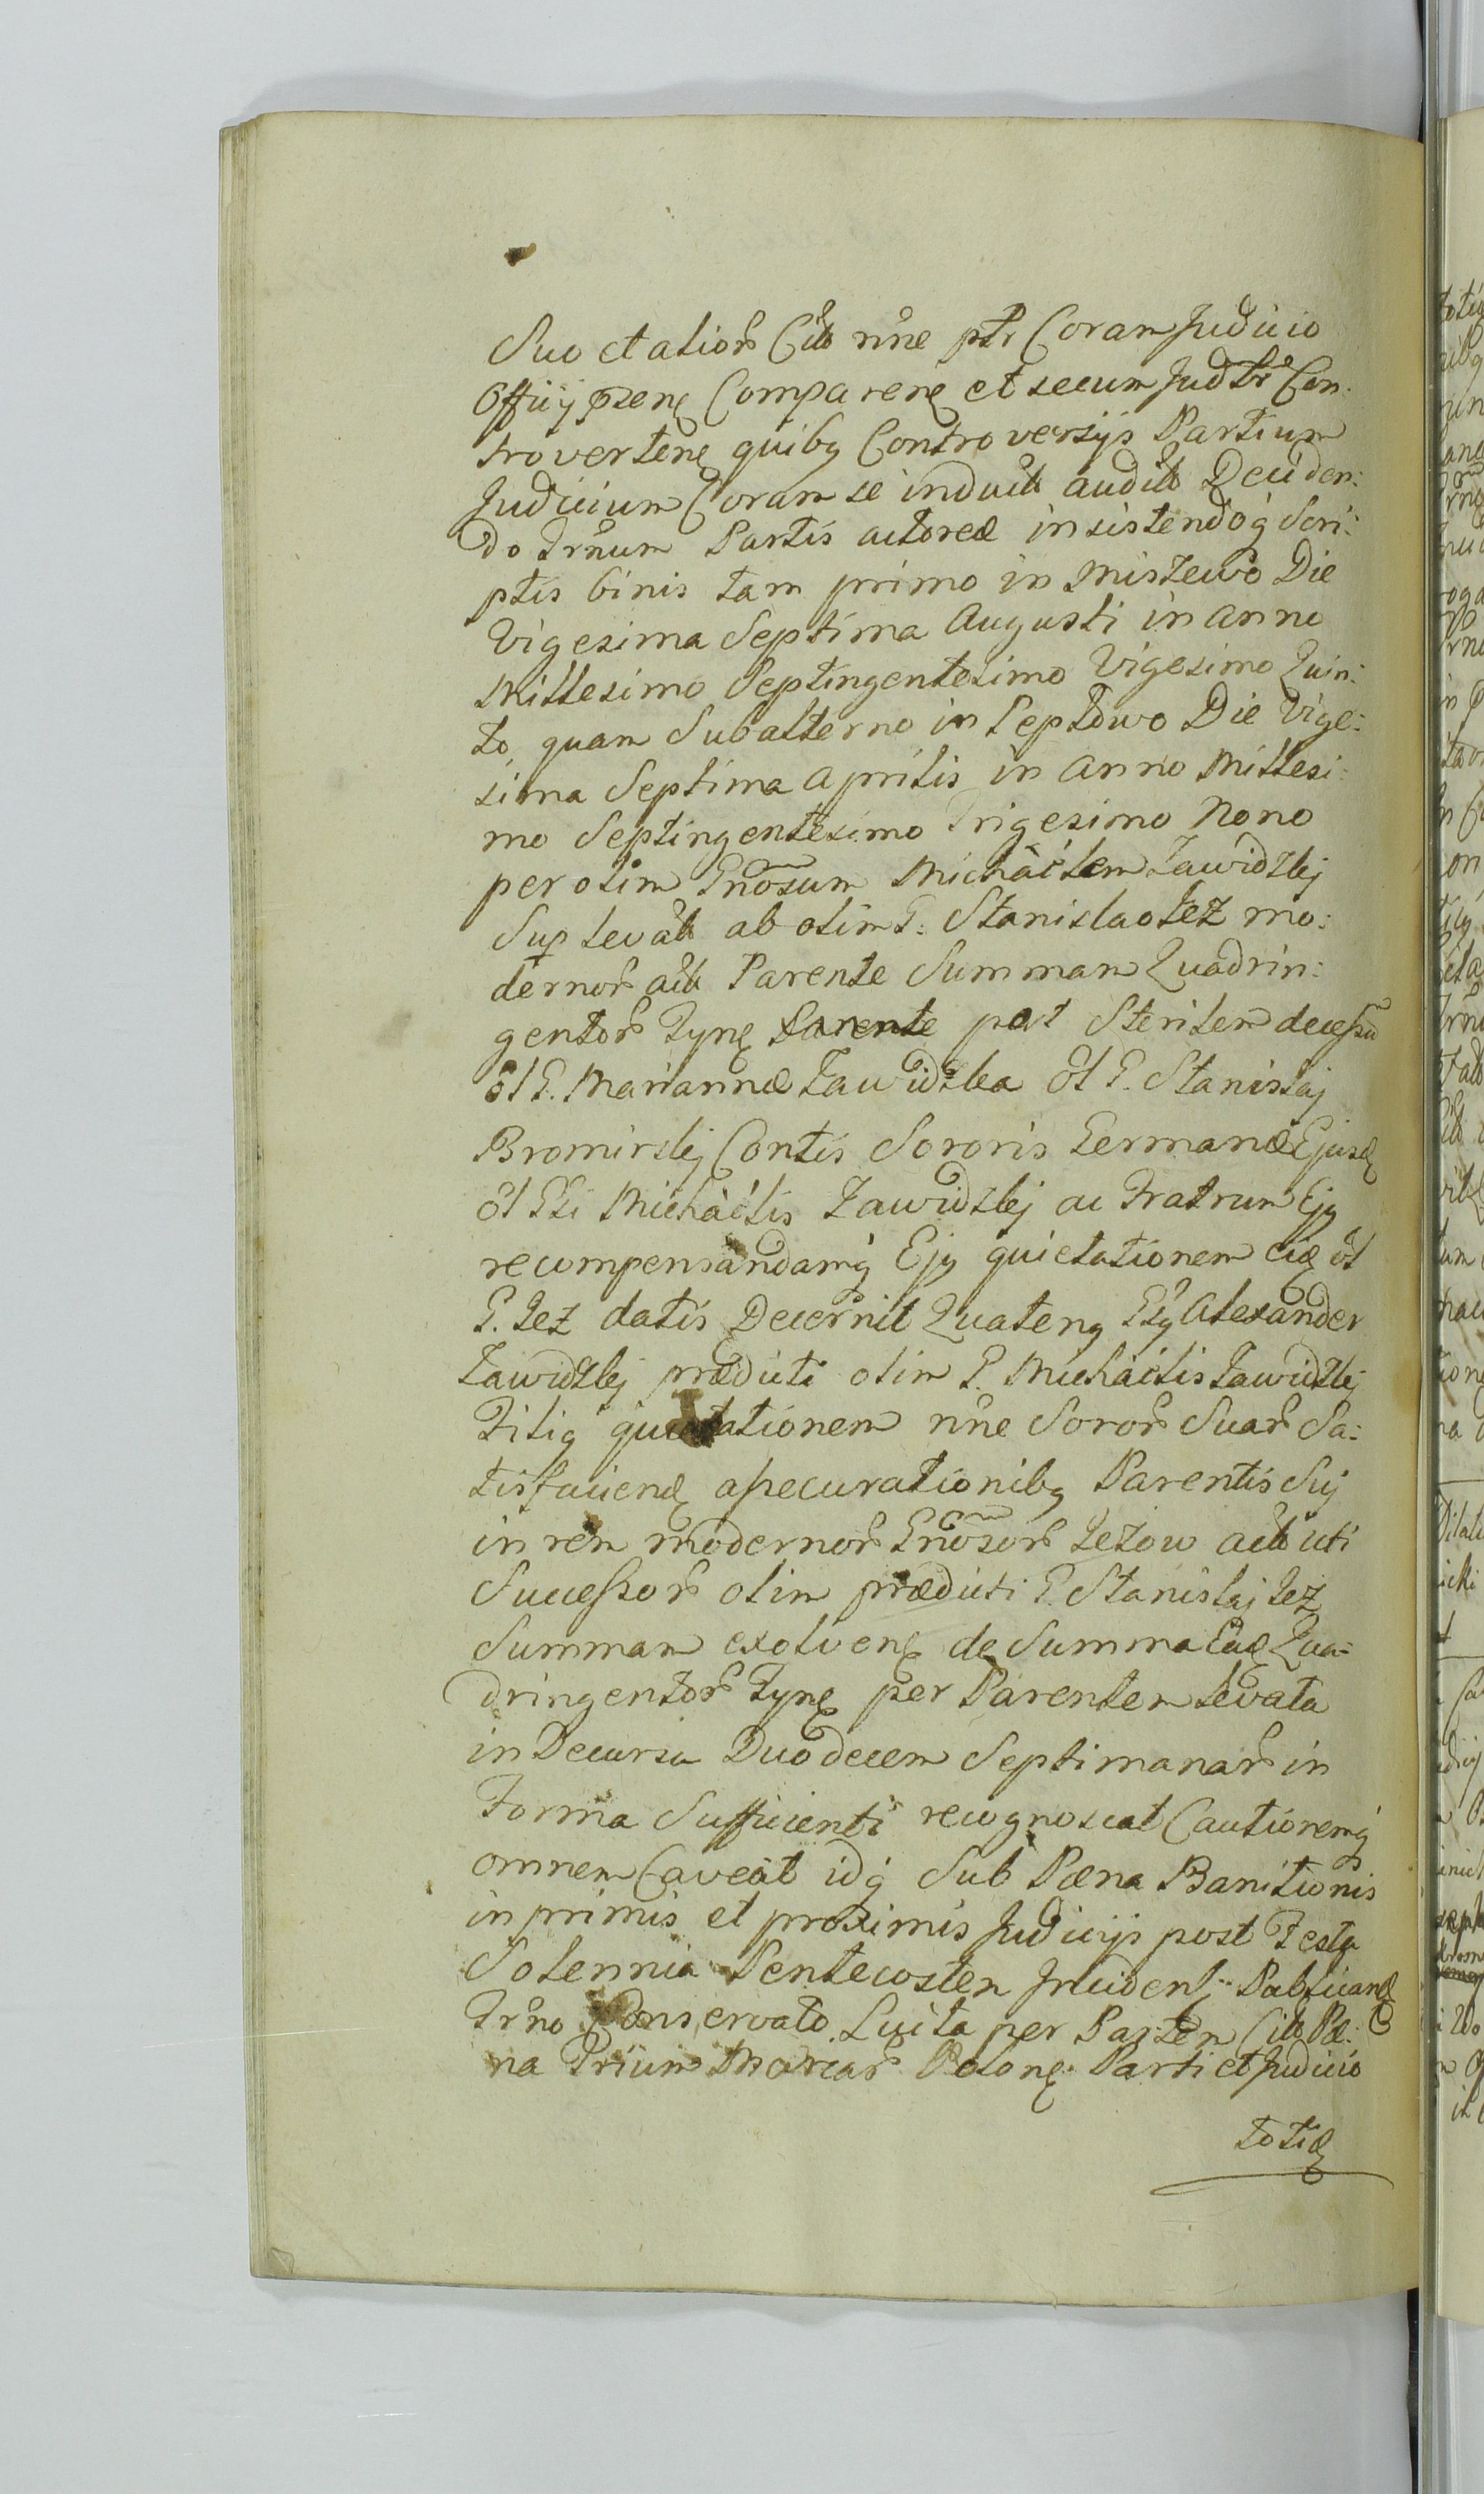 Suo et alior Citt nne ptr Coram Judicio
Officij pzene Comparene et secum Judtr Con:
trovertene quibq Controversijs Partium
Judicium Coram se induct audit Deciden:
do Trnum Partis actoreæ insistendoq Scri:
ptis binis tam primo in Miszewo Die
Vigesima Septima Augusti in Anno
Millesimo Septingentesimo Vigesimo Quin:
to, quam Subalterno in Leptowo Die Vige:
sima Septima Aprilis in Anno Millesi:
mo Septingentesimo Trigesimo Nono
per olim Gnosum Michaelem Zawidzkij
Sup levatt ab olim G: Stanislao Łez mo:
dernor actt Parente Summam Quadrin:
gentor Tyne Parente post Sterilem decessu
ol G. Mariannæ Zawidzka ol G. Stanislaj
Bromirskij Contis Sororis Germanæ Ejusd
ol Gsi Michaelis Zawidzkij ac Fratrum Ejq
recompensandamq Ejq quietationem eid ol
G. Łez datis Decernit Quatenq Gsq Alexander
Zawidzkij prædicti olim G. Michaelis Zawidzkij
Filiq quietationem nne Soror Suar Sa:
tisfaciend assecurationibq Parentis Sui
in rem modernor Gnosor Łezow actt uti
Successor olim prædicti G. Stanislaj Łez
Summam exolvene de Summa Ead Qua:
dringentor Tyne per Parentem levata
in Decursu Duodecem Septimanar in
Forma Sufficienti recognoscat Cautionemq
omnem Caveat idq Sub Pæna Banitionis
in primis et proximis Judicijs post Festa
Solennia Pentecosten Inciden: Publicand
Trno Conservato Luita per Partem Citt Pæ:
na Trium Marcar Polone Parti et Judicio
totid